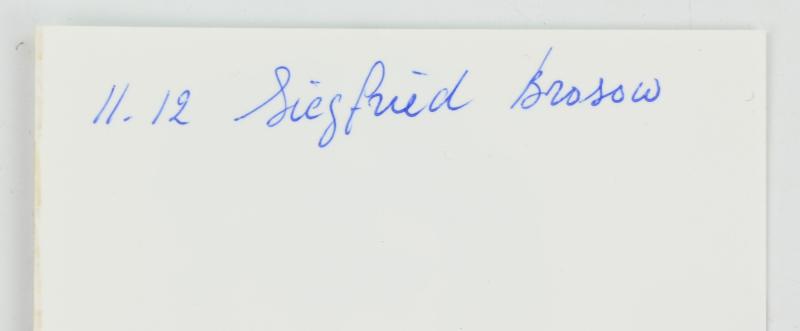 11. 12 Siegfried Brosow